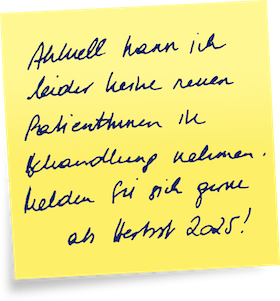 Aktuell kann ich
leider keine neuen
PatientInnen in
Behandlung nehmen.
Melden Sie sich gerne
ab Herbst 2025!